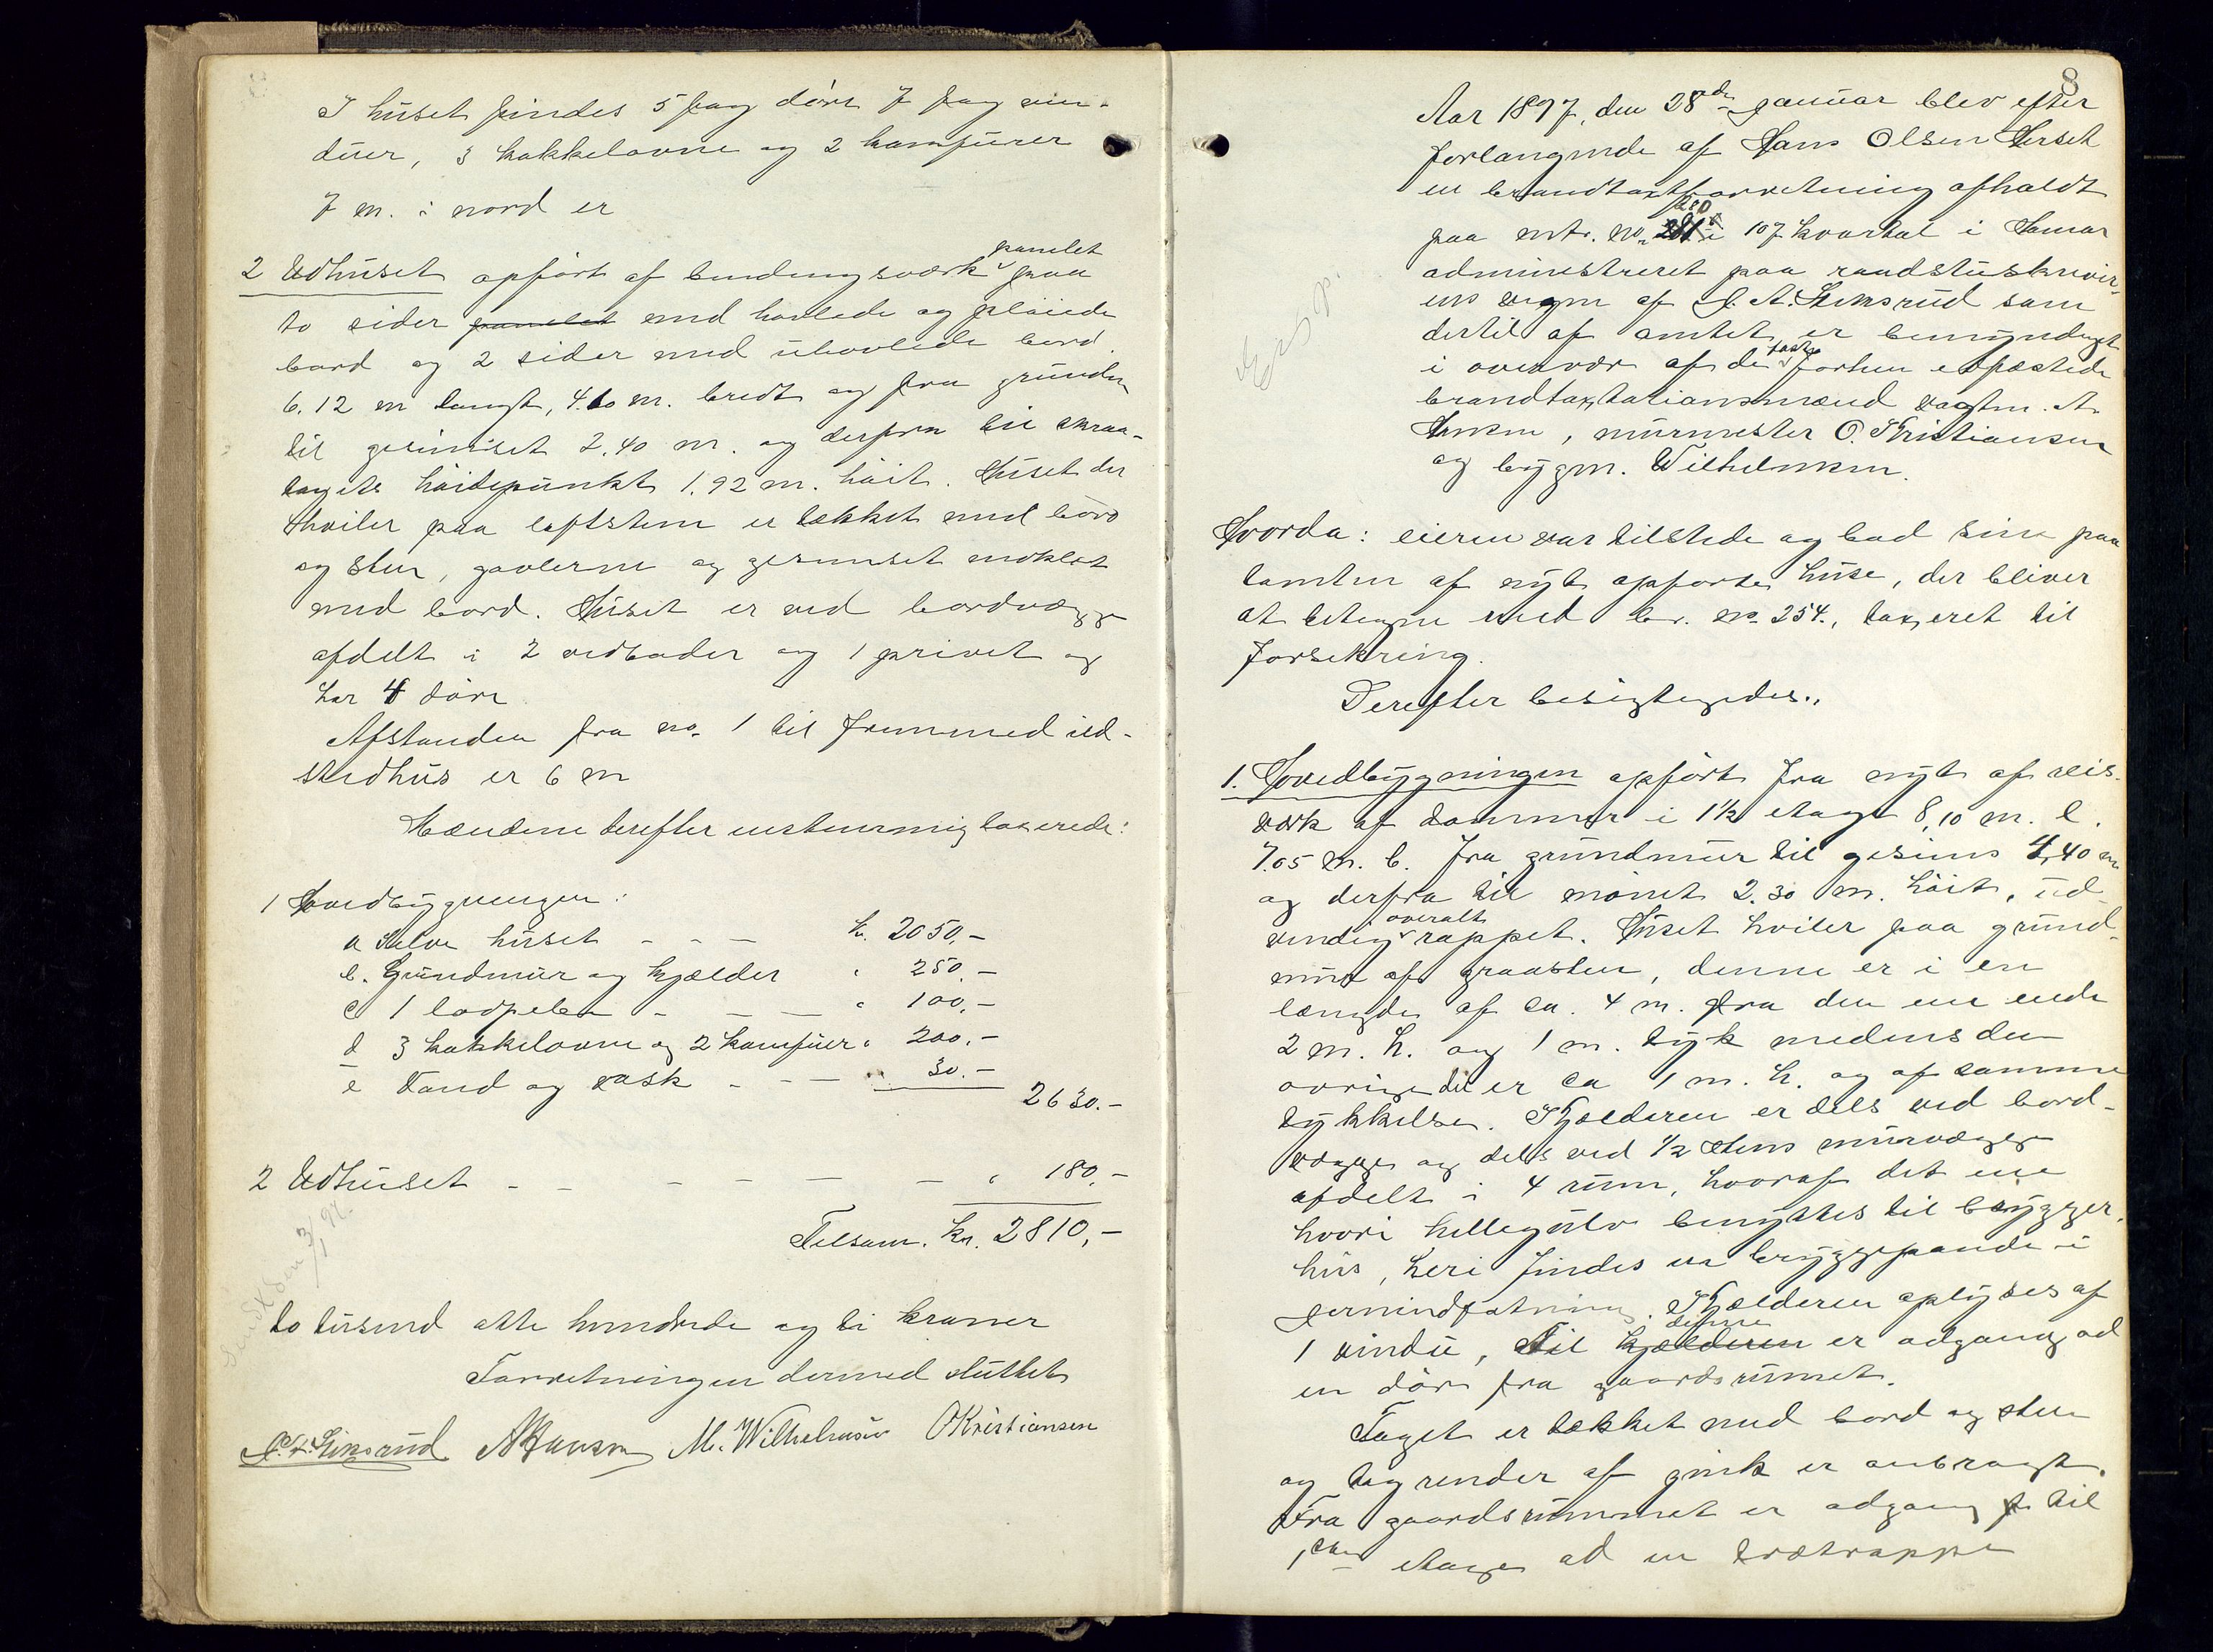 I huset findes 5 fag döre 7 fag vin-
duer, 3 kakkelovne og 2 komfurer
7 m. i nord er
2 Udhuset opfört af bindingsværk panelet paa
to sider panelet med hövlede og plöiede
bord og 2 sider med uhövlede bord.
6.12 m langt, 4.60 m. bredt og fra grunden
til gesimset 2.40 m. og derfra til skraa-
tagets höidepunkt 1.92 m. höit. Huset der
hviler paa löftsten er tækket med bord
og sten, gavlerne og gesimset indklæt
med bord. Huset er ved bordvægge
afdelt i 2 vedboder og 1 privet og
har 4 döre
Afstanden fra no. 1 til fremmed ild-
stedhus er 6 m
Mændene derefter enstemmig taxerede:
1 Hovedbygningen:
a Selve huset - - - kr. 2050,-
b. Grundmur og kjælder " 250,-
c 1 lodpibe - - - " 100,-
d 3 kakkelovne og 2 komfurer " 200,-
e Vand og vask - - - " 30.-
2630.-
2 Udhuset - - - - - - - " 180,-
Tilsam. kr. 2810,-
to tusind otte hundrede og ti kroner
Forretningen dermed sluttet
A Hansen M. Wilhelmsen O Kristiansen
8
Aar 1897, den 28de januar blev efter
forlangende af Hans Olsen Herset
en brandtaxtforretning afholdt
paa mtr. no. 281 280 i 107 kvartal i Hamar
administreret paa raadstuskriver-
ens vegne af som
dertil af amtet er bemyndiget
i overvær af de faste forhen edfæstede
brandtaxtationsmænd vagtm. A.
Hansen, murmester O. Kristiansen
og bygm. Wilhelmsen.
Hvorda: eieren var tilstede og bad sine paa
tomten af nyt opförte huse, der bliver
at betegne med br. no. 254., taxeret til
forsikring.
Derefter besigtigedes.,
1. Hovedbygningen opfört fra nyt af reis-
værk af tömmer i 1½ etage 8,10 m. l.
7.05 m. b. fra grundmur til gesims 4,40 m
og derfra til mönet 2.30 m. höit, ud-
vendig overalt rappet. Huset hviler paa grund-
mur af graasten, denne er i en
længde af ca. 4 m. fra den ene ende
2 m. h. og 1 m. tyk medens den
övrige del er ca 1 m. h. og af samme
tykkelse. Kjælderen er dels ved bord-
vægge og dels ved ½ stens murvægge
afdelt i 4 rum, hvoraf det ene
hvori hellegulv benyttes til brygger-
hus, heri findes en bryggepande i
jernindfatning. Kjælderen oplyses af
1 vindu, Til kjælderen denne er adgang ad
en dör fra gaardsrumet.
Taget er tækket med bord og sten
og tagrender af zink er anbragt.
Fra gaardsrummet er adgang til
1ste etage ad en trætrappe